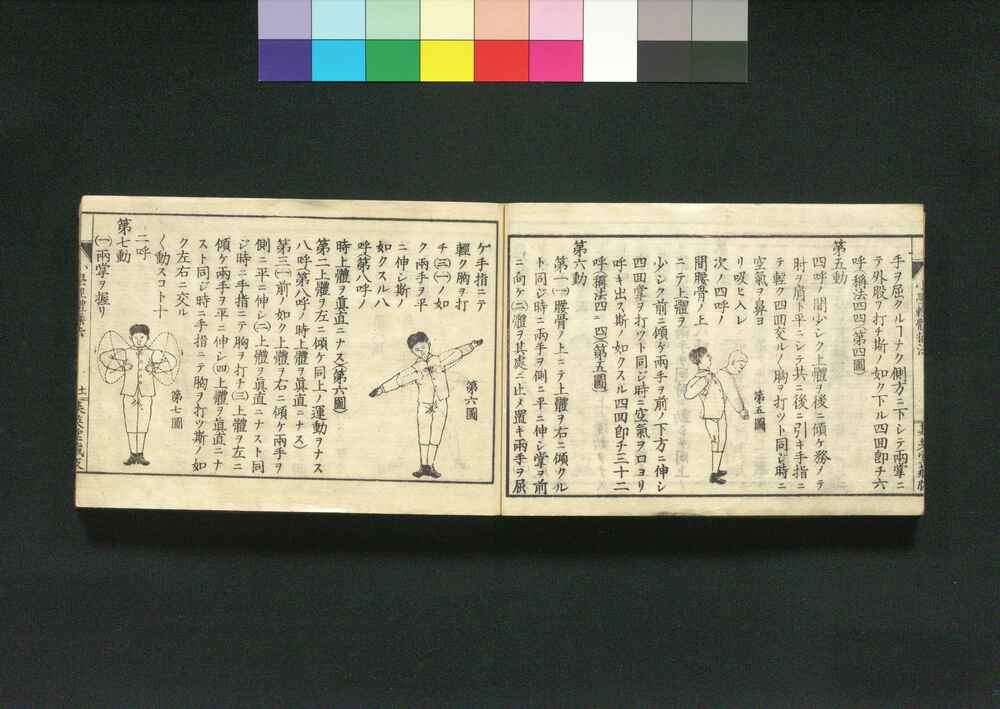 手ヲ屈クルヿナク側方ニ下シテ兩掌ニ
テ外股ヲ打チ斯ノ如ク下ル四回卽チ六
呼(稱法四四)(第四圖)
第五動
四呼ノ間少シク上體ヲ後ニ傾ケ務メテ
肘ヲ肩ト平ニシテ共ニ後ニ引キ手指ニ
テ輕ク四回交ル〳〵胸ヲ打ツト同ジ時ニ
空氣ヲ鼻ヨ
リ吸ヒ入レ
次ノ四呼ノ
間腰骨ノ上
ニテ上體ヲ
第五圖
少シク前ニ傾ケ兩手ヲ前ノ下方ニ伸シ
四回掌ヲ打ツト同ジ時ニ空氣ヲ口ヨリ
呼キ出ス斯ノ如クスル四回卽チ三十二
呼(稱法四ニ四)(第五圖)
第六動
第一(一)腰骨ノ上ニテ上體ヲ右ニ傾クル
ト同ジ時ニ兩手ヲ側ニ平ニ伸シ掌ヲ前
ニ向ケ(二)體ヲ其處ニ止メ置キ兩手ヲ屈
ゲ手指ニテ
輕ク胸ヲ打
チ(三)(一)ノ如
ク兩手ヲ平
ニ伸シ斯ノ
如クスル八
呼(第八呼ノ
第六圖
時上體ヲ眞直ニナス)(第六圖)
第二上體ヲ左ニ傾ケ同上ノ運動ヲナス
八呼(第八呼ノ時上體ヲ眞直ニナス)
第三(一)前ノ如ク上體ヲ右ニ傾ケ兩手ヲ
側ニ平ニ伸シ(二)上體ヲ眞直ニナスト同
ジ時ニ手指ニテ胸ヲ打チ(三)上體ヲ左ニ
傾ケ兩手ヲ平ニ伸シ(四)上體ヲ眞直ニナ
スト同ジ時ニ手指ニテ胸ヲ打ツ斯ノ如
ク左右ニ交ル
〳〵動スコト十
二呼
第七動
(一)兩掌ヲ握リ
第七圖